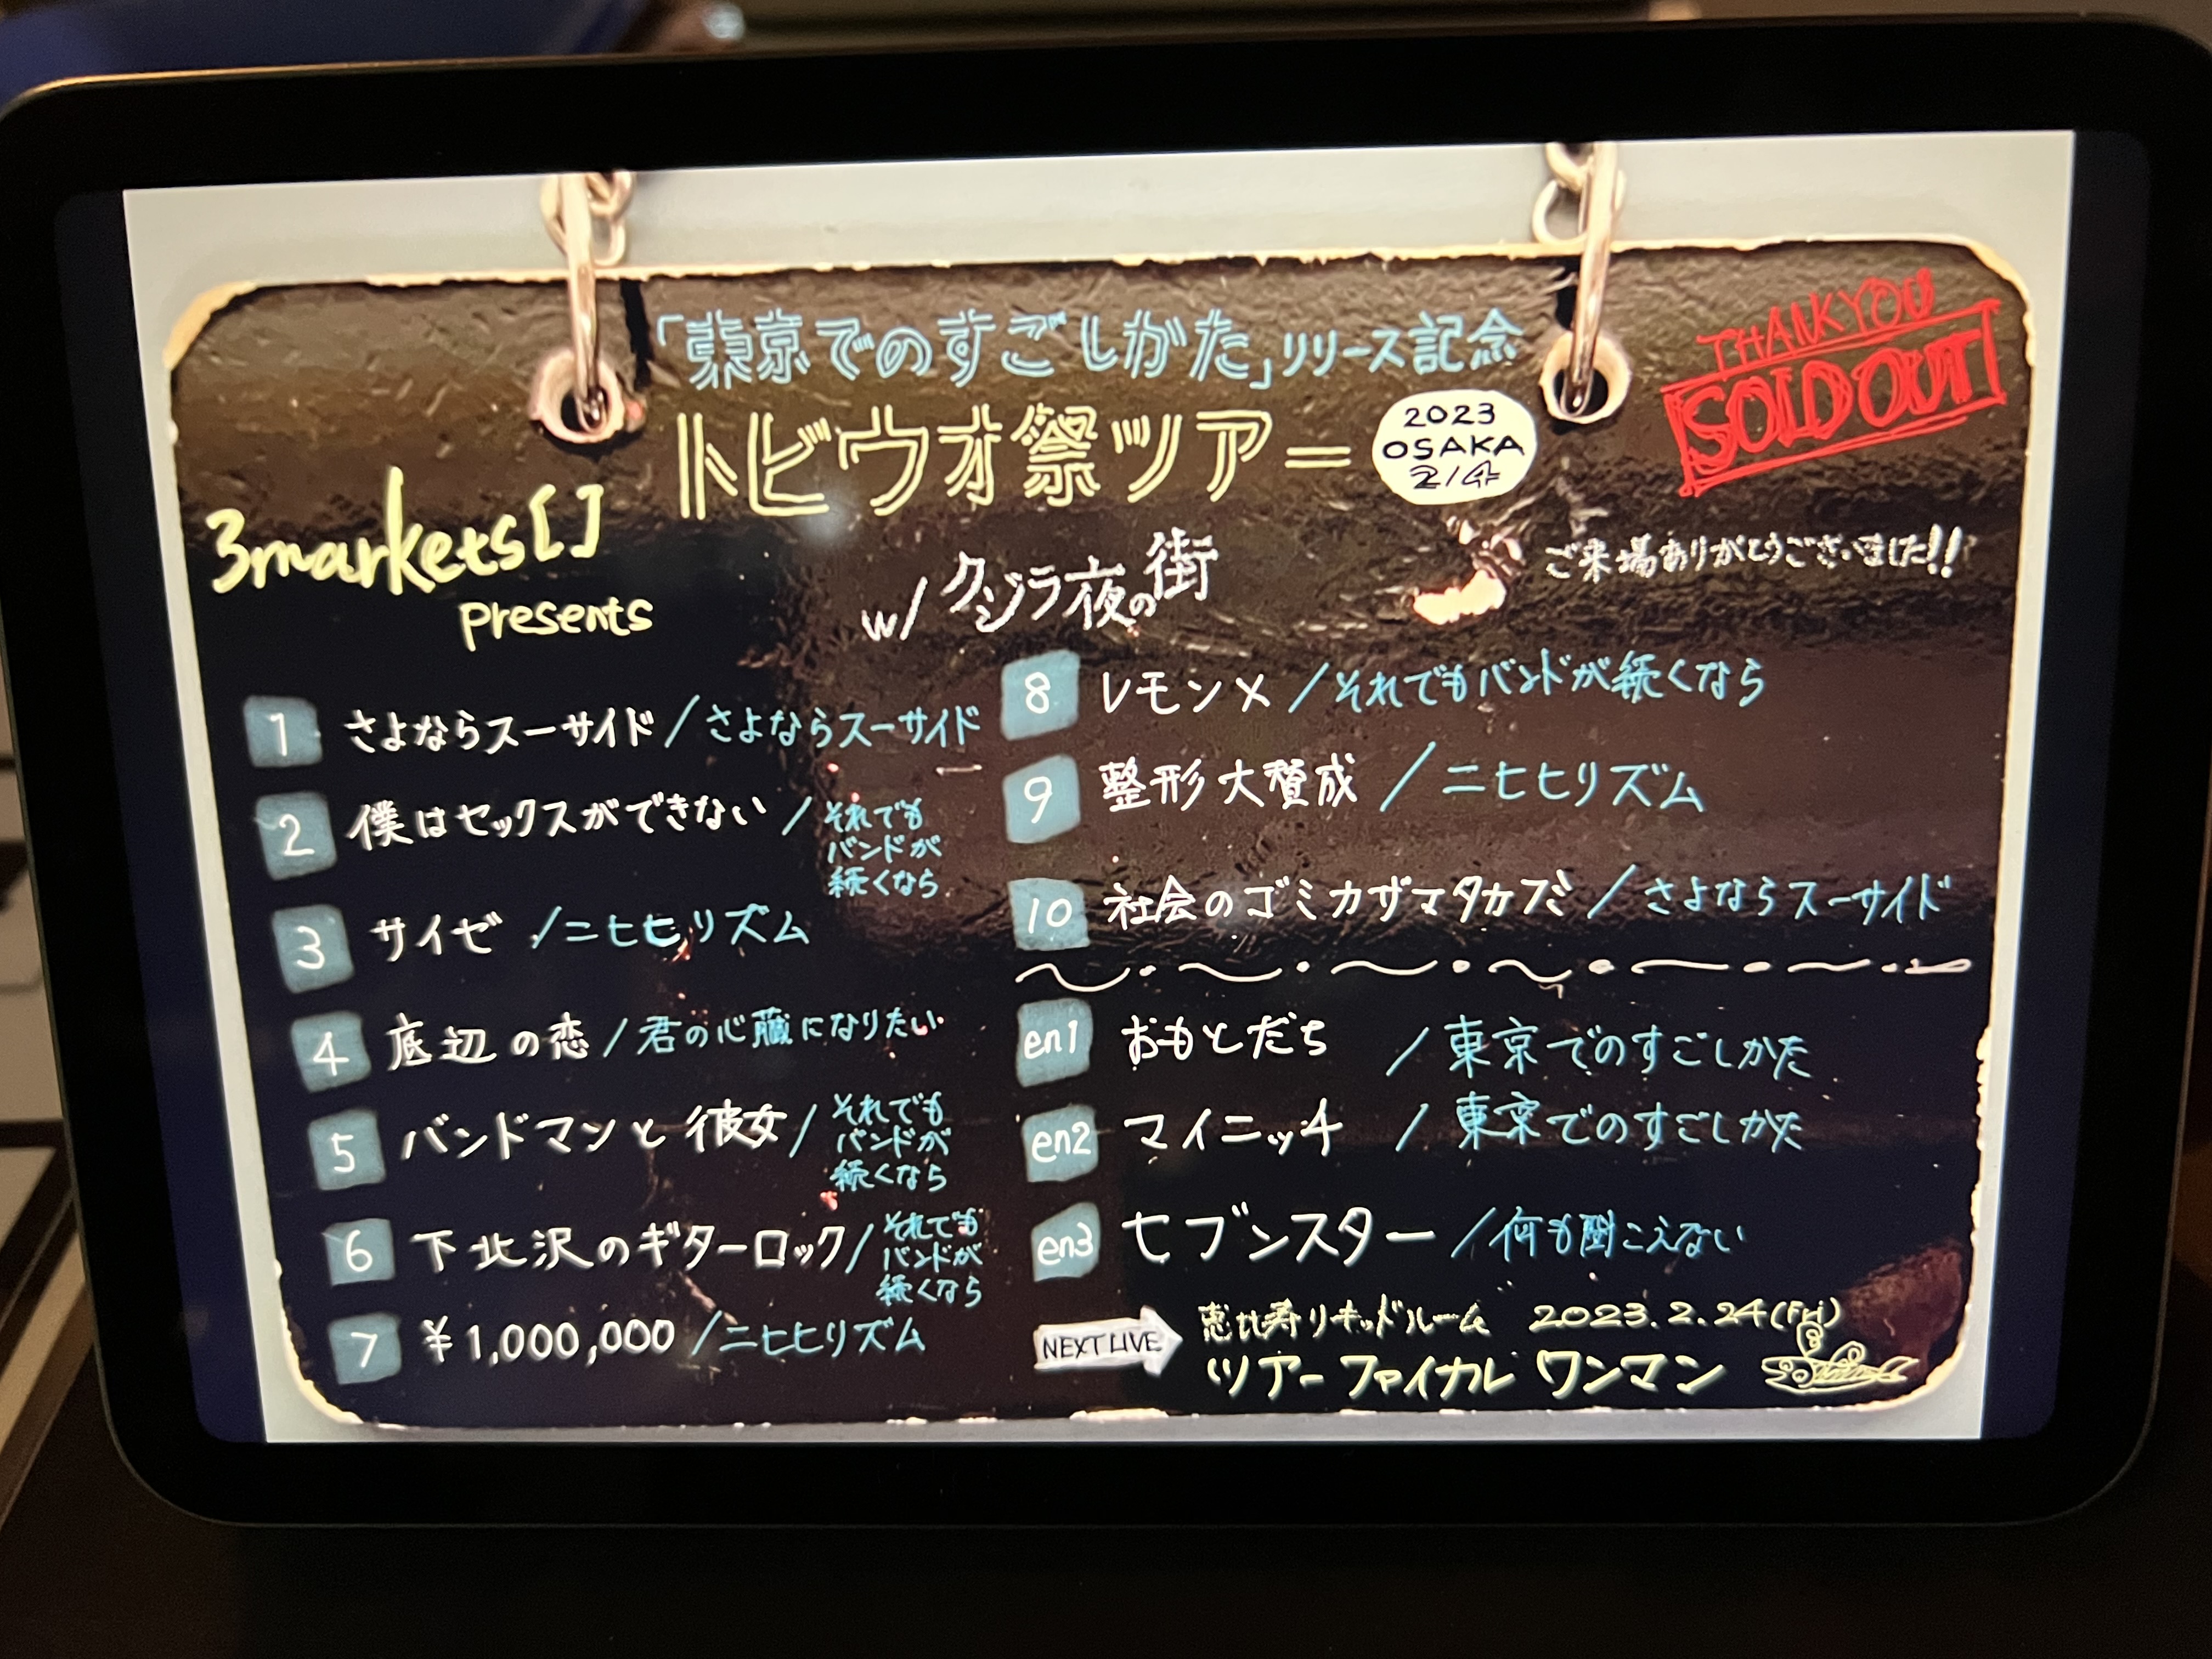 「東京でのすごしかた」リリース記念
トビウオ祭ツアー=
2023
OSAKA
2/4
THANK YOU
SOLD OUT
3markets[]
presents
w/クジラ夜の街
ご来場ありがとうございました!!
1 さよならスーサイド/さよならスーサイド
2 僕はセックスができない/それでも
バンドが
続くなら
3 サイゼ/ニヒヒリズム
4 底辺の恋/君の心臓になりたい
5 バンドマンと彼女/それでも
バンドが
続くなら
6 下北沢のギターロック/それでも
バンドが
続くなら
7 ¥1,000,000/ニヒヒリズム
8 レモン×/それでもバンドが続くなら
9 整形大賛成/ニヒヒリズム
10 社会のゴミカザマタカフミ/さよならスーサイド
en1 おもとだち/東京でのすごしかた
en2 マイニッチ/東京でのすごしかた
en3 セブンスター/何も聞こえない
NEXT LIVE
恵比寿リキッドルーム 2023.2.24(Fri)
ツアーファイナル ワンマン